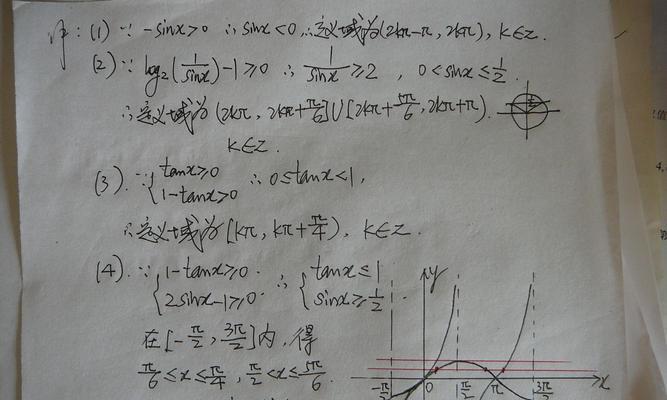 解：(1) ∵ -sinx>0 ∴ sinx<0 ∴定义域为(2kπ-π, 2kπ), k∈Z.
(2) ∵ log₂(1/sinx)-1≥0 ∴ 1/sinx≥2 , 0<sinx≤1/2.
∴定义域为(2kπ, 2kπ+π/6]∪[2kπ+5π/6, 2kπ+π).
k∈Z.
(3). ∵{tanx≥0 1-tanx>0 ∴ 0≤tanx<1,
∴定义域为[kπ, kπ+π/4), k∈Z.
(4) ∵{1-tanx≥0. 2sinx-1≥0. ∴{tanx≤1 sinx≥1/2.
在[-π/2, 3π/2]内, 得
π/6≤x≤π/4, π/2<x≤5π/6.
y
x
-π/2 0 π/2 π 3π/2